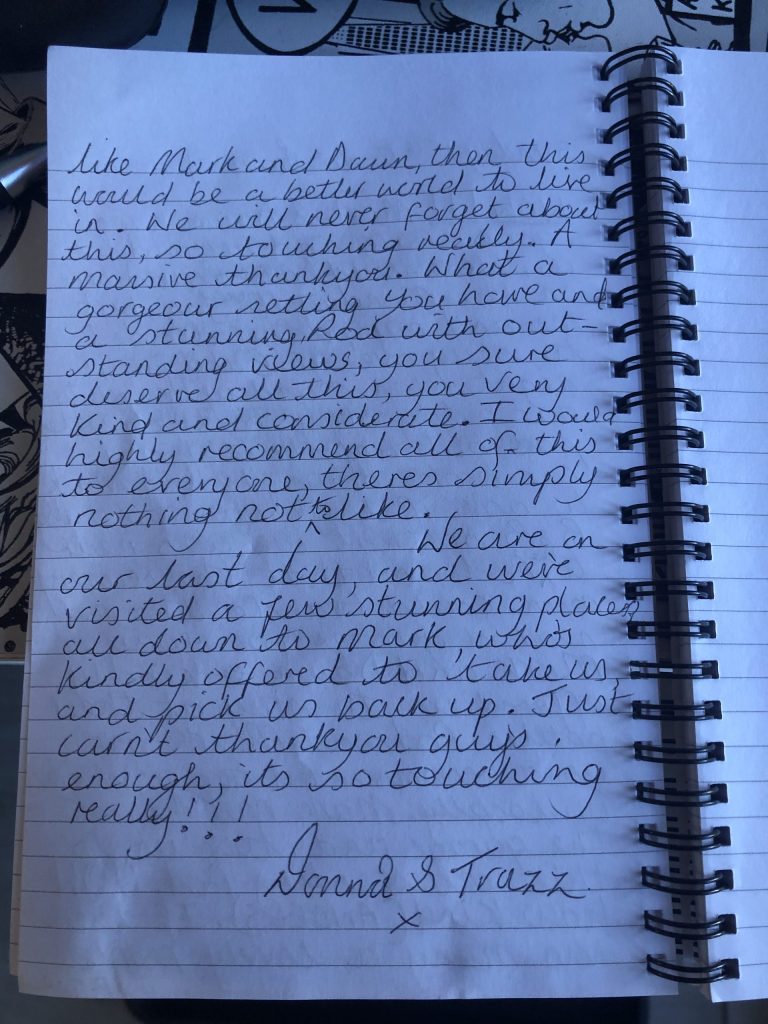 like Mark and Dawn, then this
would be a better world to live
in. We will never forget about
this, so touching really. A
massive thankyou. What a
gorgeour setting you have and
a stunning Pod with out-
standing views, you sure
deserve all this, you very
kind and considerate. I would
highly recommend all of this
to everyone, theres simply
nothing not to like.
We are on
our last day, and we've
visited a few stunning places
all down to Mark, who's
kindly offered to take us,
and pick us back up. Just
carn't thankyou guys.
enough, its so touching
really!!!
Donna & Trazz.
x